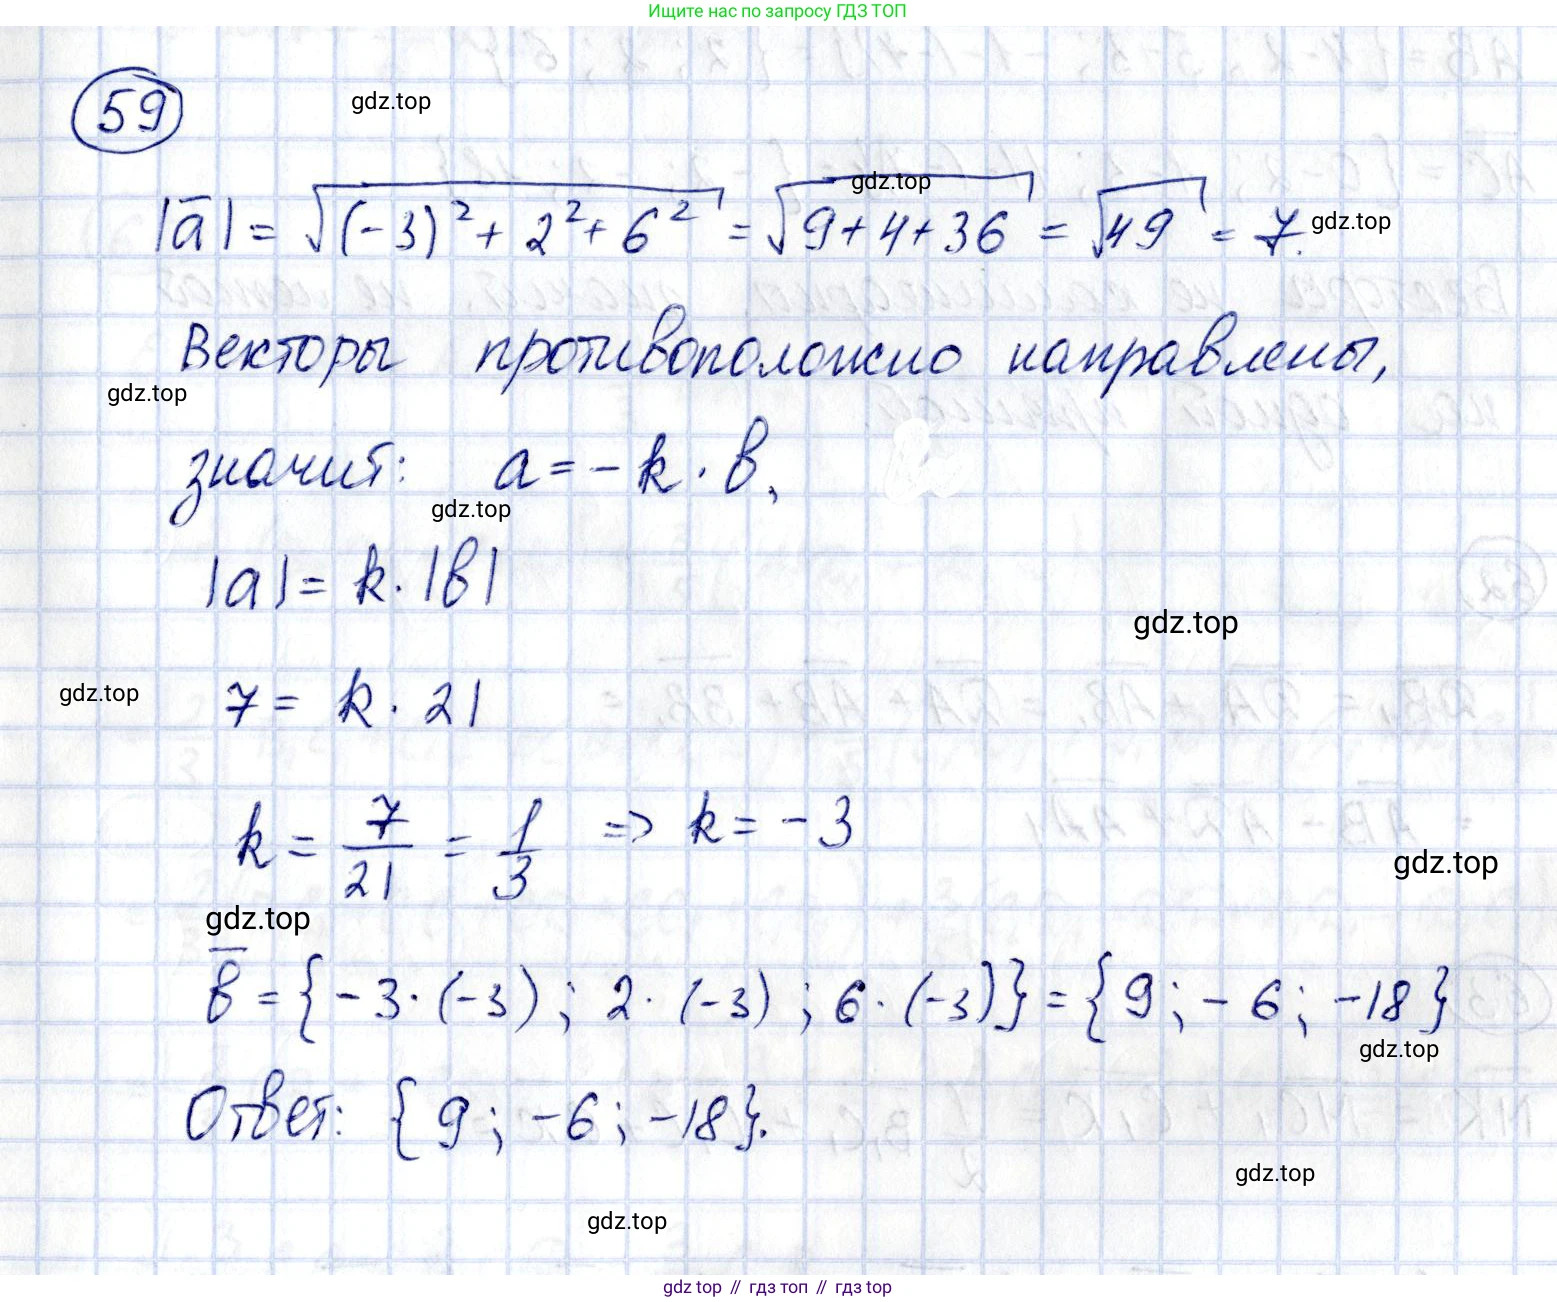 Ищите нас по запросу ГДЗ ТОП
59
gdz.top
|a̅| = √((-3)² + 2² + 6²) = √(9+4+36) = √49 = 7.
gdz.top
gdz.top
Векторы противоположно направлены,
gdz.top
значит: a = -k · b,
gdz.top
|a| = k · |b|
gdz.top
7 = k · 21
gdz.top
k = 7/21 = 1/3 => k = -3
gdz.top
gdz.top
b̅ = {-3·(-3); 2·(-3); 6·(-3)} = {9; -6; -18}
gdz.top
Ответ: {9; -6; -18}.
gdz.top
gdz.top
gdz top // гдз топ // gdz top